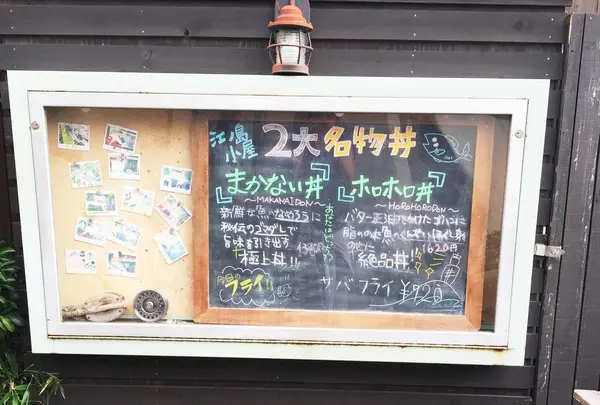 江ノ島小屋
2大名物丼
『まかない丼』
~MAKANAIDON~
新鮮な魚のなめろうに
秘伝のゴマダレで
旨味を引き出す
極上丼!!
あなたはどっち?
『ホロホロ丼』
~HOROHORODON~
バター正油をかけたゴハンに
脂ののった魚のくんせいほぐし身
のせた
絶品丼!!
1620円
今日の
フライ!
サバフライ ¥920